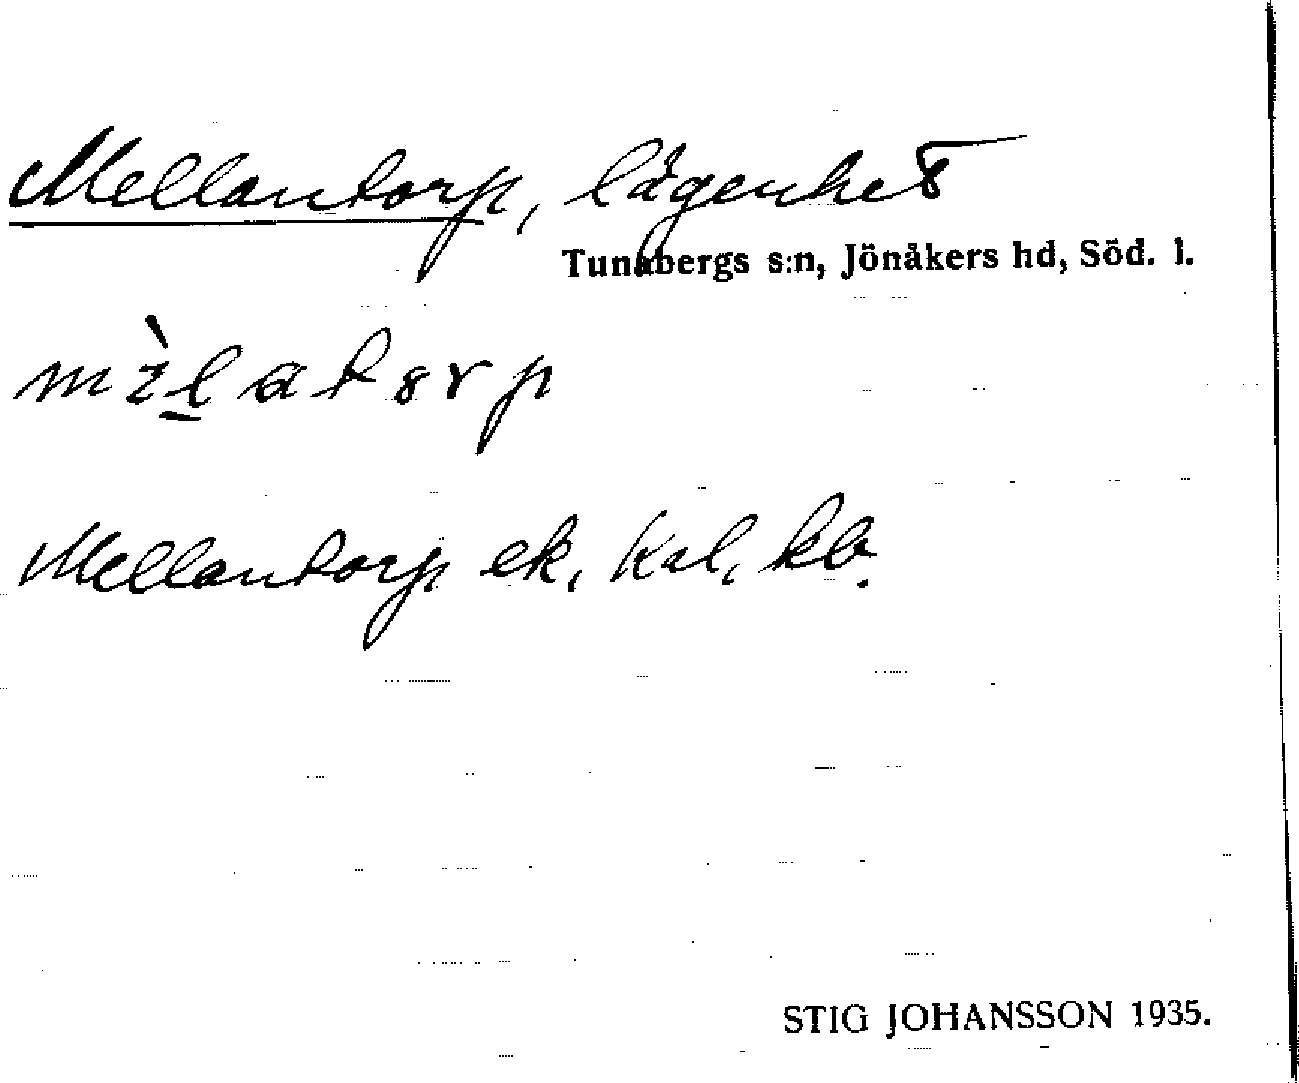 Mellantorp, lägenhet
Tunabergs s:n, Jönåkers hd, Söd. l.
Mellantorp ek, kal, kb.
STIG JOHANSSON 1935.